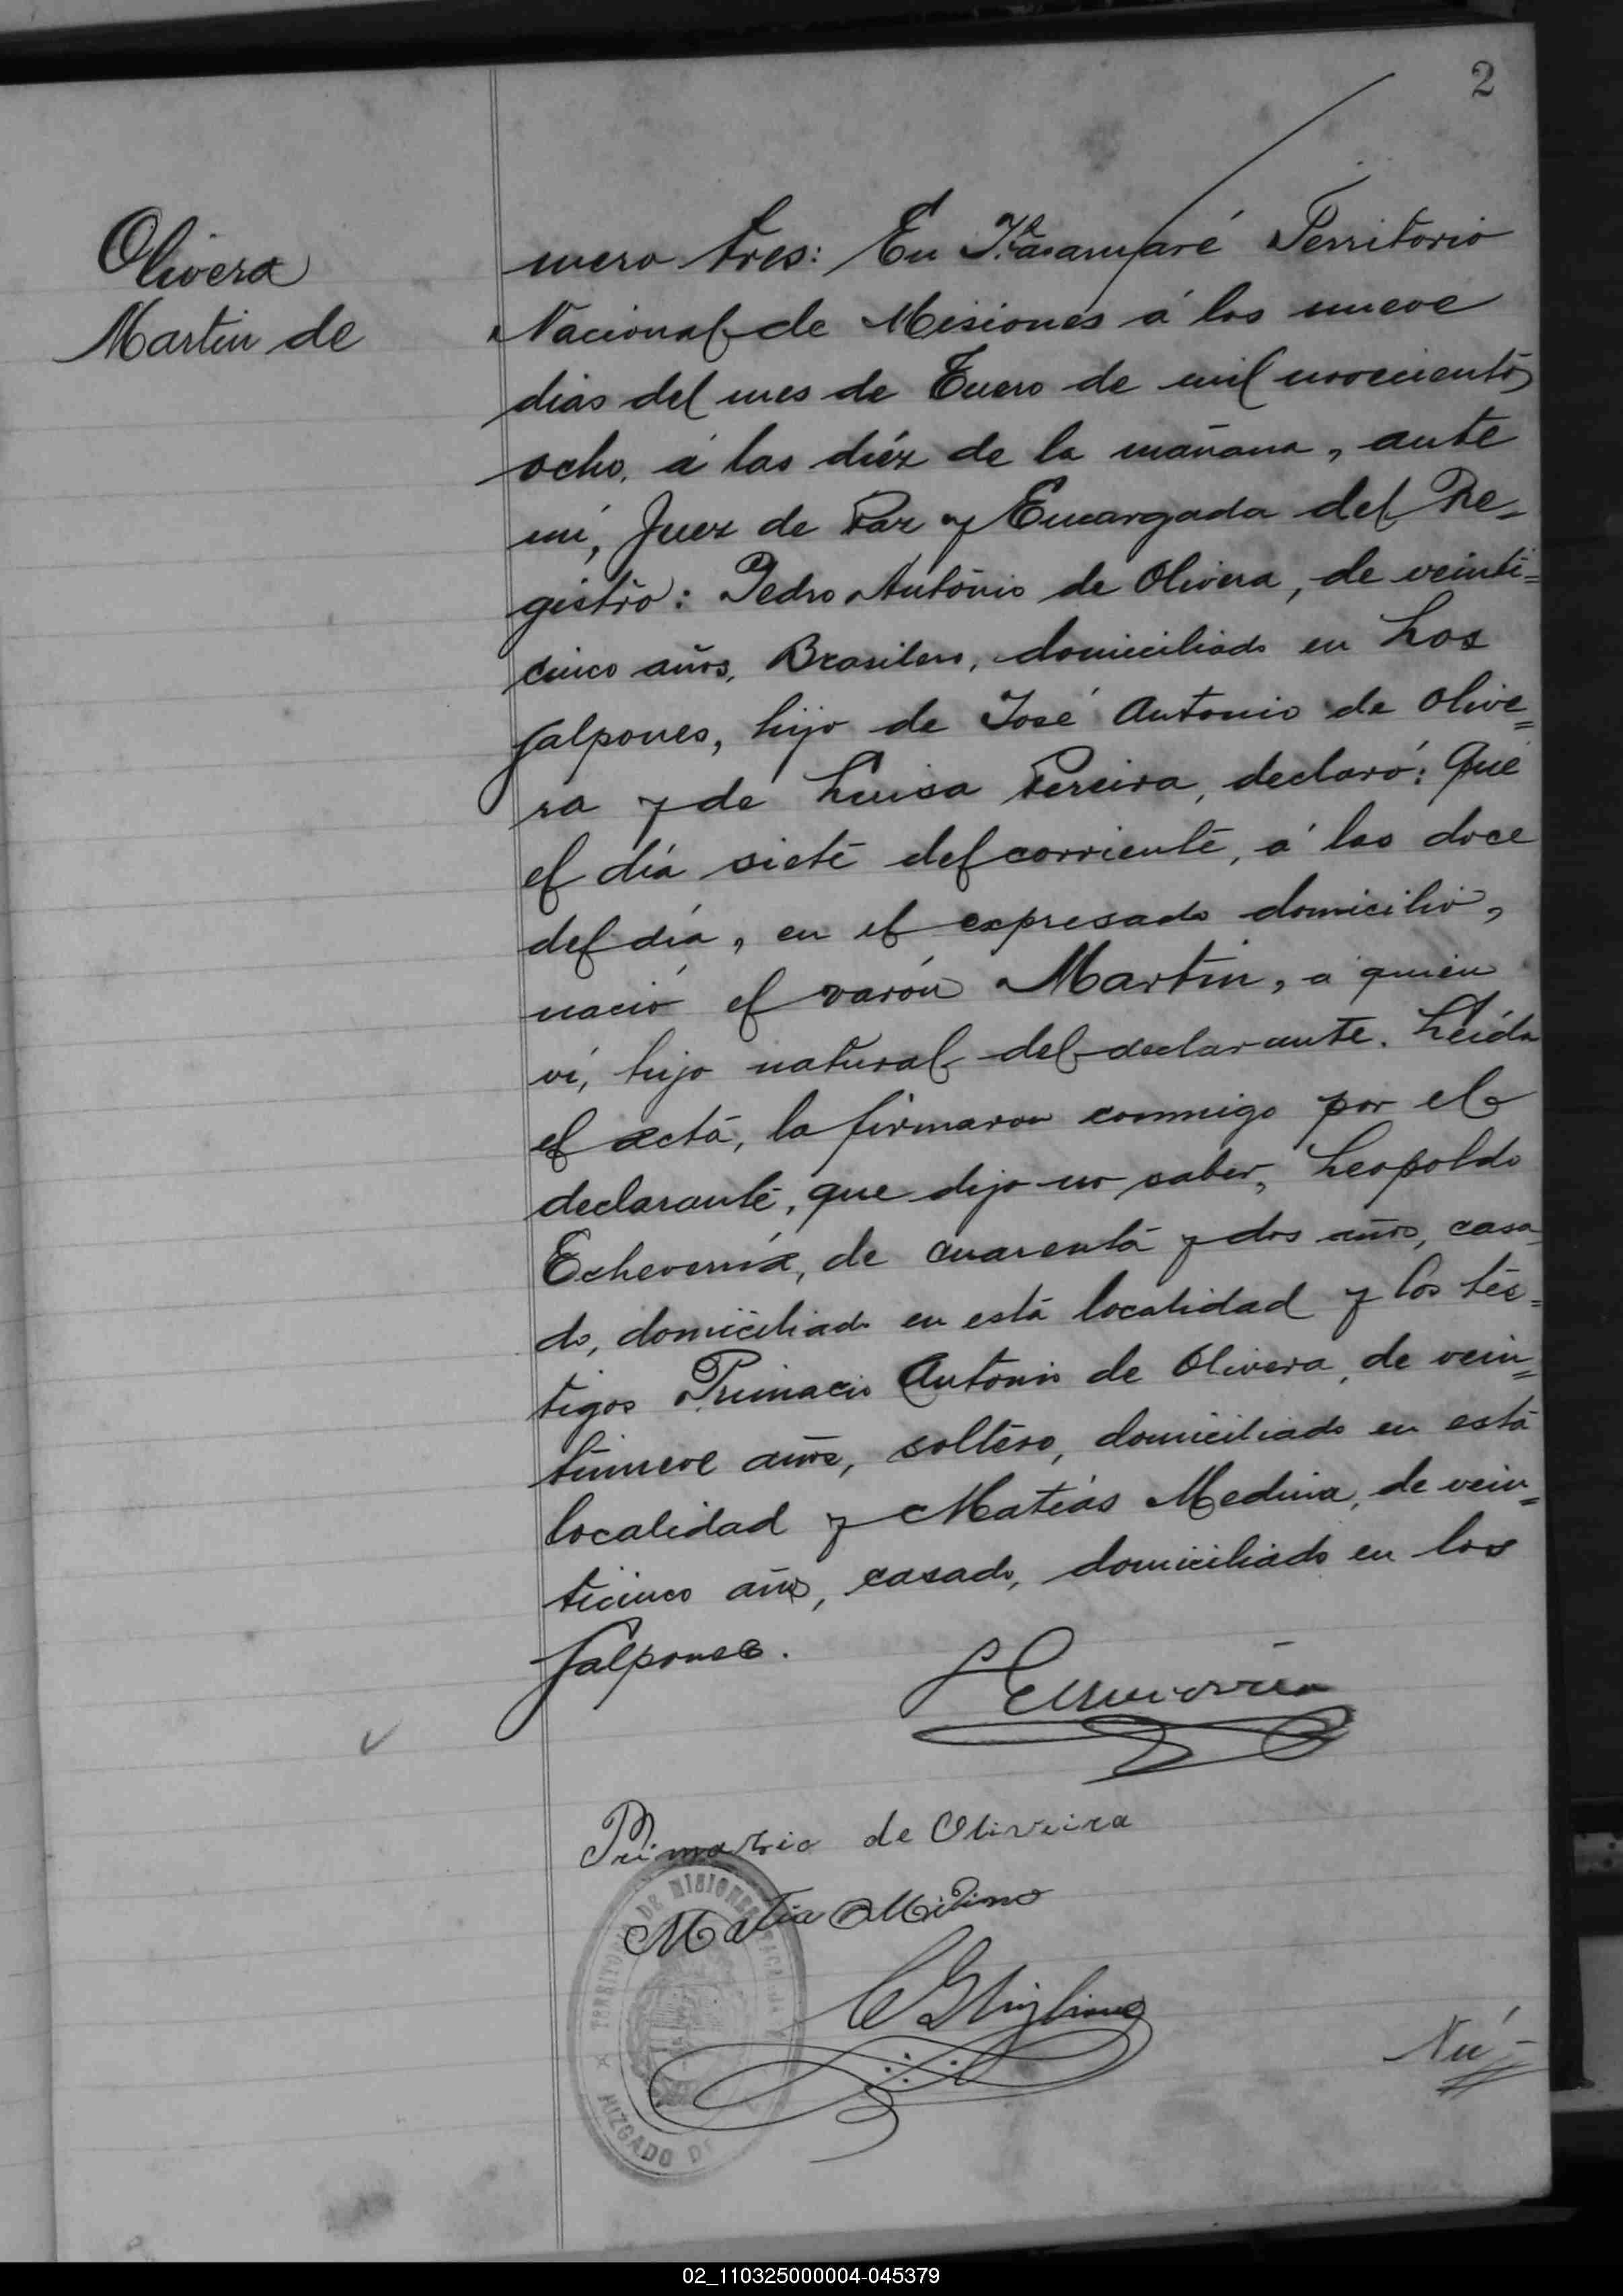 2
Olivera
Martin de
mero tres: En Itacaruaré Territorio
Nacional de Misiones á los nueve
dias del mes de Enero de mil novecientos
ocho, á las diéz de la mañana, ante
mí, Juez de Paz y Encargada del Re-
gistro: Pedro Antonio de Olivera, de veinti=
cinco años, Brasilero, domiciliado en Los
galpones, hijo de José Antonio de Olive=
ra y de Luisa Pereira, declaró: Que
el día siete del corriente, á las doce
del día, en el expresado domicilio,
nació el varón Martin, a quien
ví, hijo natural del declarante. Leída
el acta, la firmaron conmigo por el
declarante, que dijo no saber, Leopoldo
Echeverría, de cuarenta y dos años, casa
do, domiciliado en esta localidad y los tes=
tigos Primacio Antonio de Olivera, de vein=
tinueve años, soltero, domiciliado en esta
localidad y Matías Medina, de vein=
ticinco años, casado, domiciliado en los
galpones.
L Echeverria
de Oliveira
Matia
TERRITORIO DE MISIONES
JUZGADO DE
Nú=
02_110325000004-045379